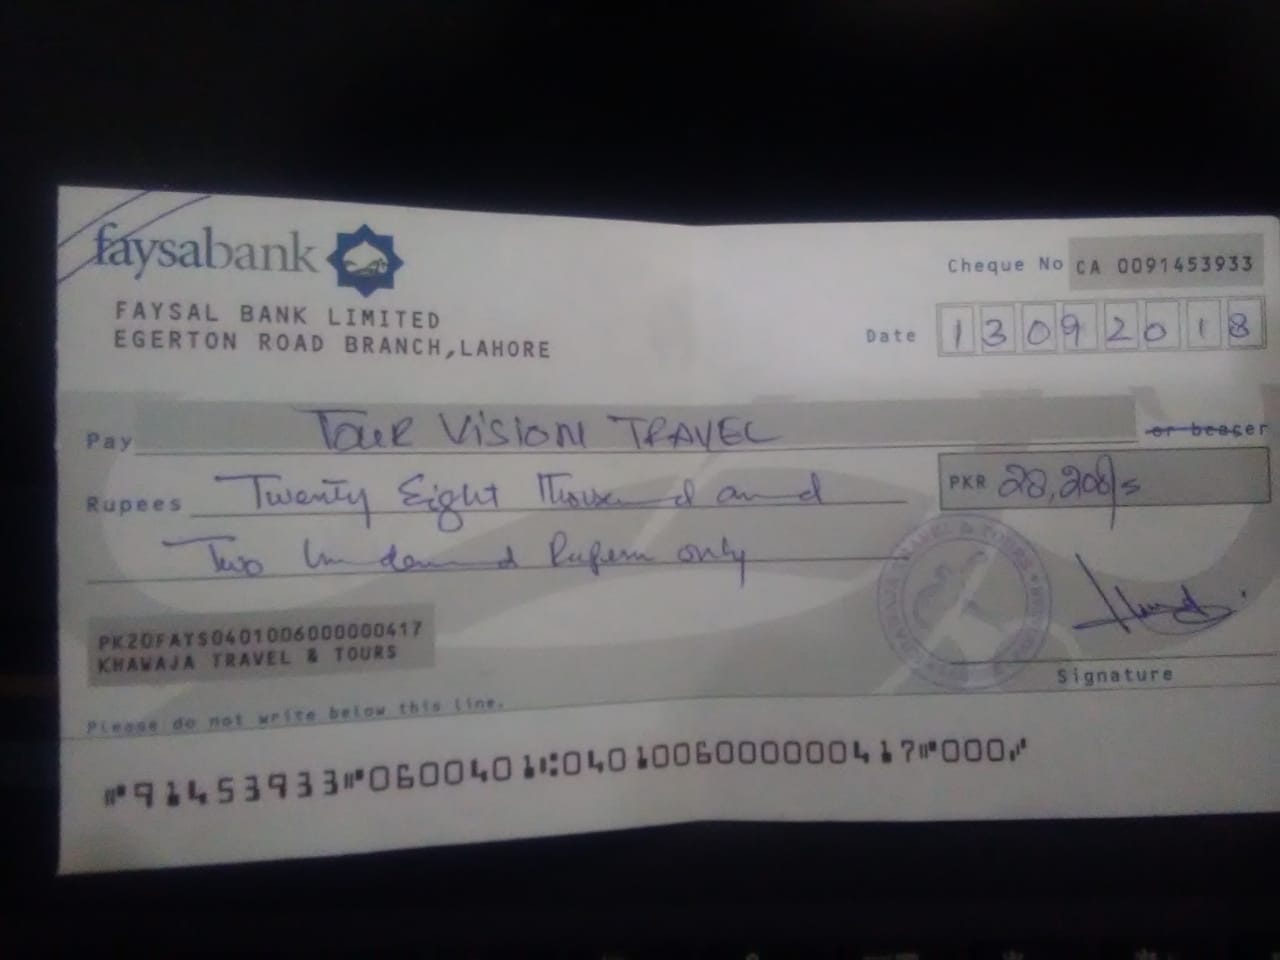 faysabank
FAYSAL BANK LIMITED
EGERTON ROAD BRANCH,LAHORE
Cheque No CA 0091453933
Date 13092018
Pay TOUR VISION TRAVEL or bearer
Rupees Twenty Eight Thousand and
PKR 28,200/s
Two Hundered Rupees only
PK20FAYS0401006000000417
KHAWAJA TRAVEL & TOURS
TRAVEL & TOURS
Signature
Please do not write below this line.
⑈91453933⑈0600401⑆0401006000000417⑈000⑇